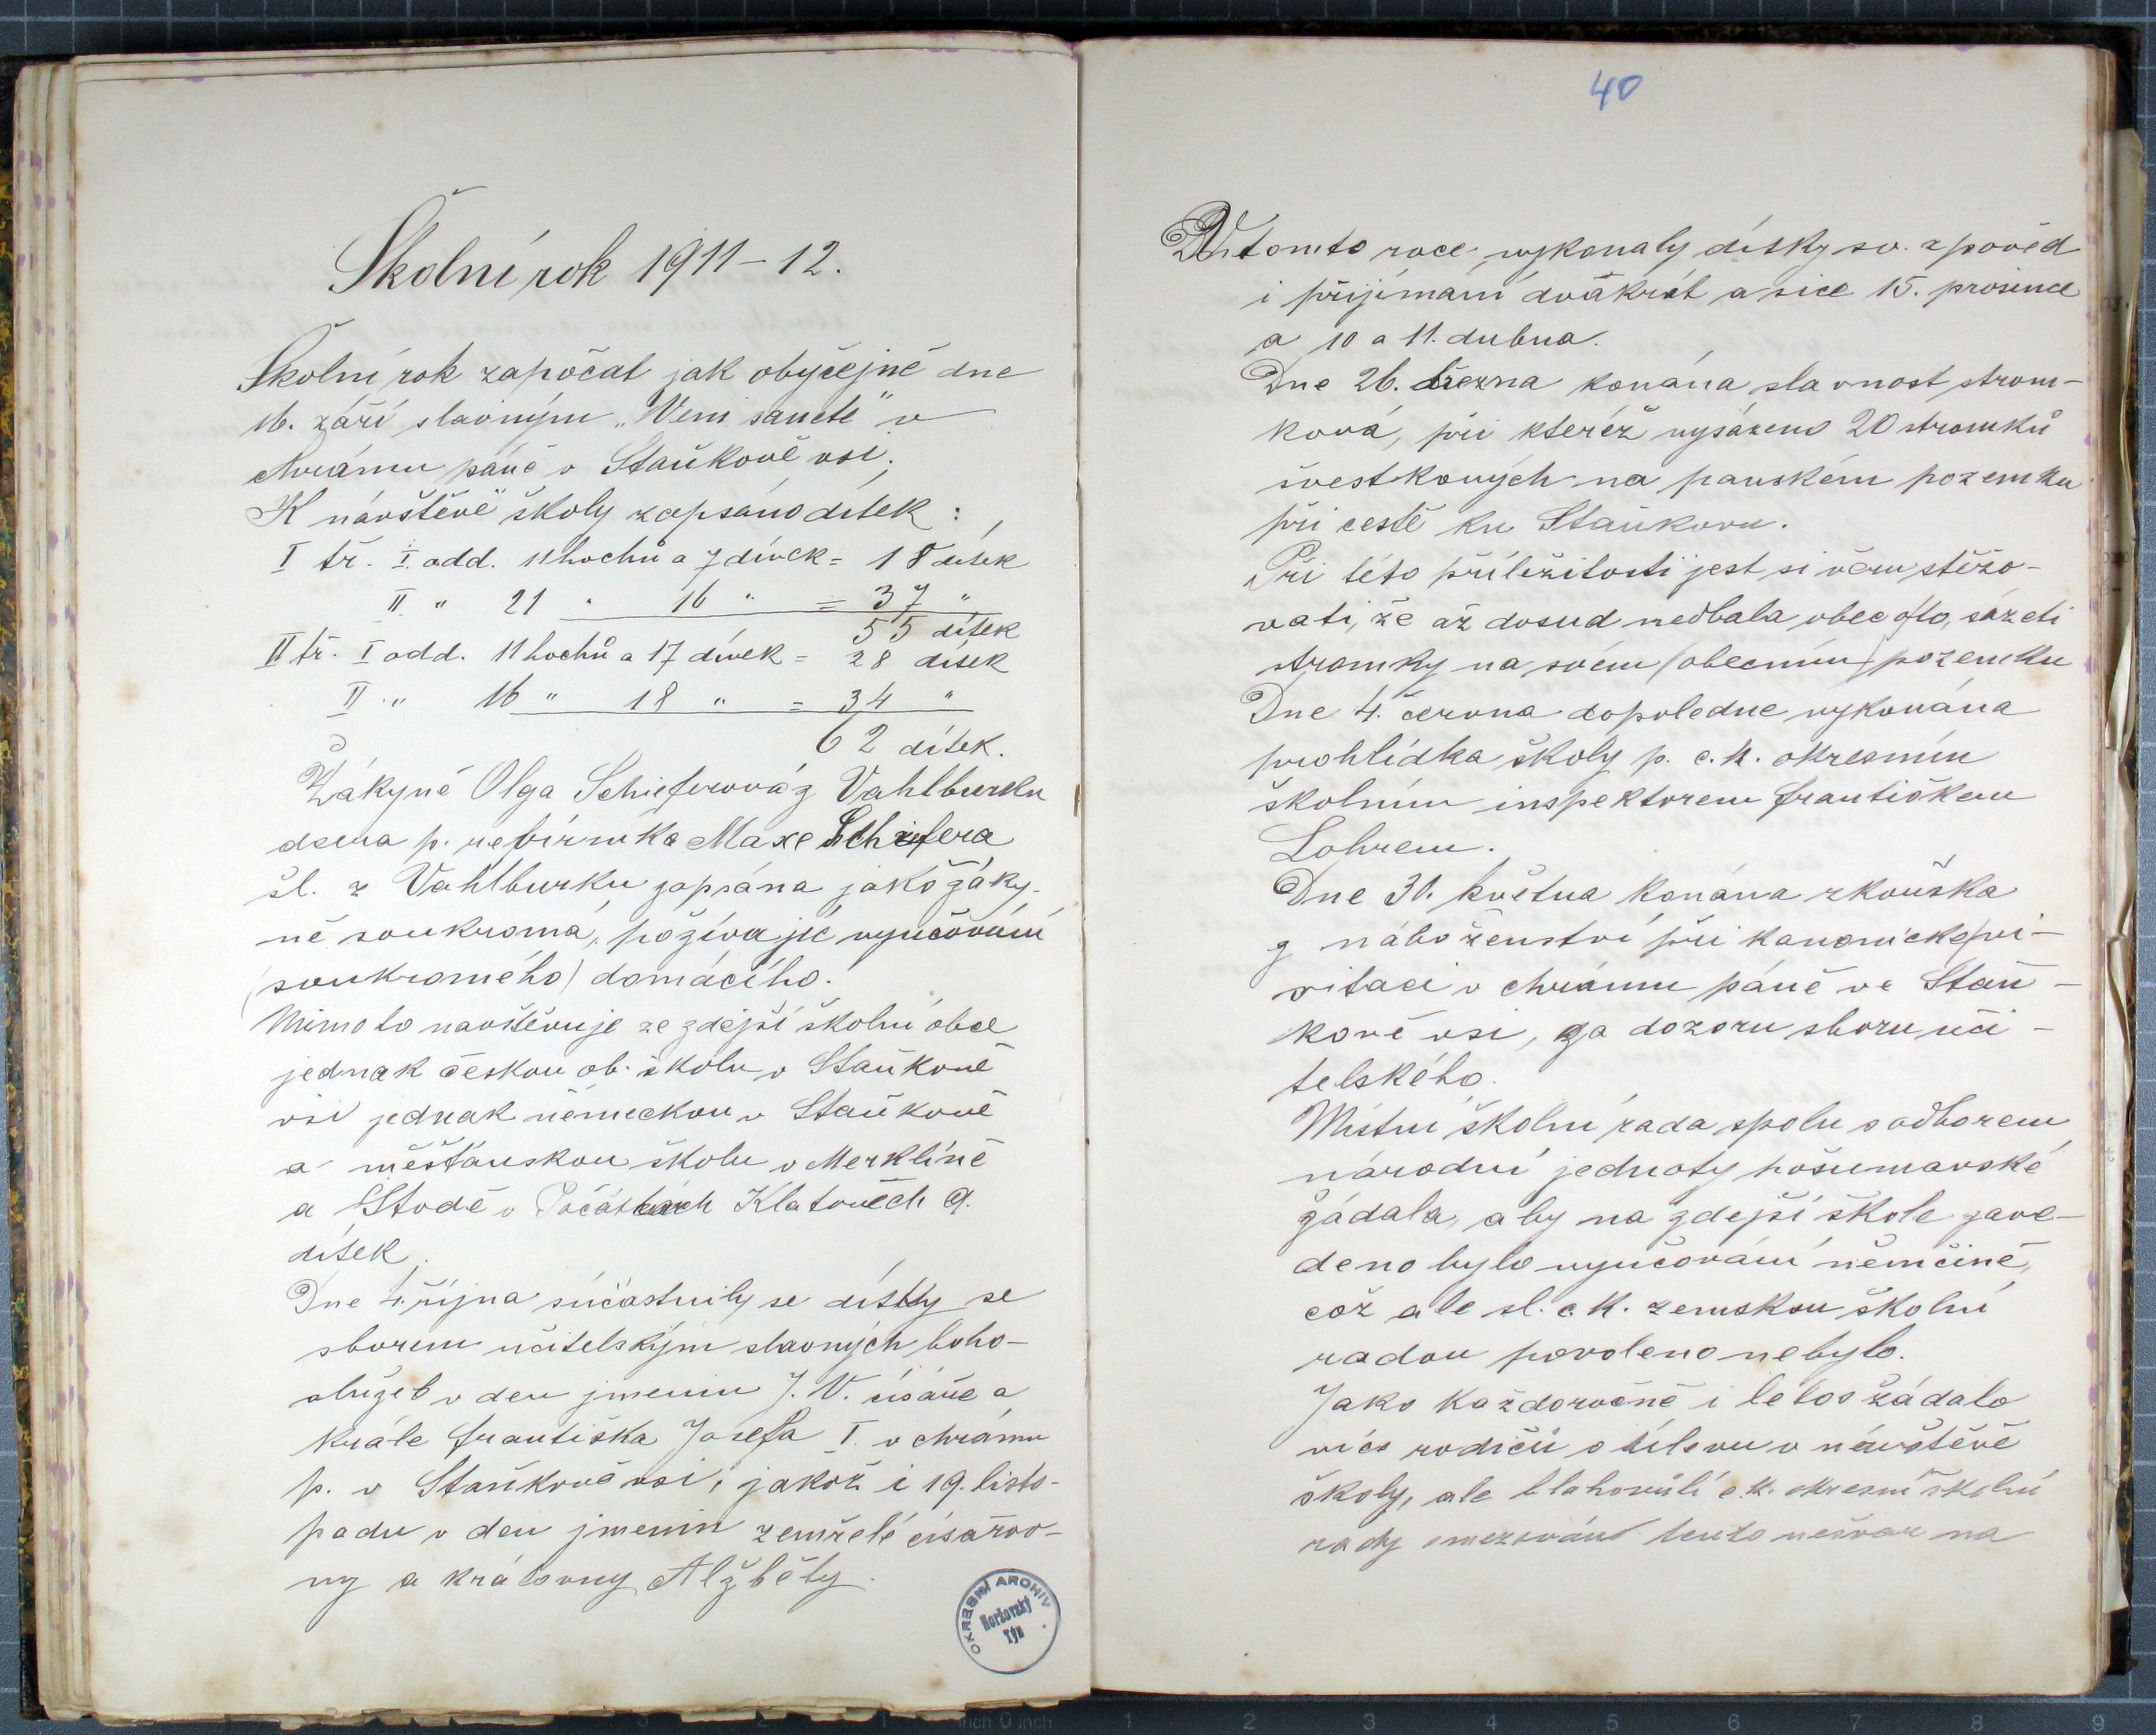 Školní rok 1911-12.
Školní rok započat jak obyčejně dne
16. září slavným „Veni sancte" v
chrámu páně v Staňkově vsi.
K návštěvě školy zapsáno dítek:
I tř. I. odd. 11 hochů a 7 dívek = 18 dítek
II. " 21 " 16 " = 37 "
55 dítek
II tř. I odd. 11 hochů a 17 dívek = 28 dítek
II " 16 " 18 " = 34 "
62 dítek.
Žákyně Olga Schieferová z Vahlburku
dcera p. revírníka Maxe Schiefera
čl. z Vahlburku zapsána jako žáky-
ně soukromá, požívajíc vyučování
(soukromého) domácího.
Mimo to navštěvuje ze zdejší školní obce
jednak českou ob. školu v Staňkově
vsi jednak německou v Staňkově
a měšťanskou školu v Merklíně
a Stodě v Klatovech 9.
dítek.
Dne 4. října súčastnily se dítky se
sborem učitelským slavných boho-
služeb v den jmenin J. V. císaře a
krále Františka Josefa I. v chrámu
p. v Staňkově vsi, jakož i 19. listo-
padu v den jmenin zemřelé císařov-
ny a královny Alžběty.
OKRESNÍ ARCHIV
Horšovský
Týn
40
V tomto roce vykonaly dítky sv. zpověd
i přijímání dvakrát a sice 15. prosince
a 10 a 11. dubna.
Dne 26. března konána slavnost strom-
ková, při kteréž vysázeno 20 stromků
švestkových na panském pozemku
při cestě ku Staňkovu.
Při této příležitosti jest si věru stěžo-
vati, že až dosud nedbala obec o to, sázeti
stromky na svém (obecním) pozemku
Dne 4. června dopoledne vykonána
prohlídka školy p. c. k. okresním
školním inspektorem Františkem
Lohrem.
Dne 30. května konána zkouška
z náboženství při kanonické vi-
sitaci v chrámu páně ve Staň-
kově vsi, za dozoru sboru uči-
telského.
Místní školní rada spolu s odborem
národní jednoty pošumavské
žádala, aby na zdejší škole zave-
deno bylo vyučování němčině,
což ale sl. c. k. zemskou školní
radou povoleno nebylo.
Jako každoročně i letos žádalo
více rodičů o úlevu v návštěvě
školy, ale blahovůlí c. k. okresní školní
rady omezován tento nešvar na